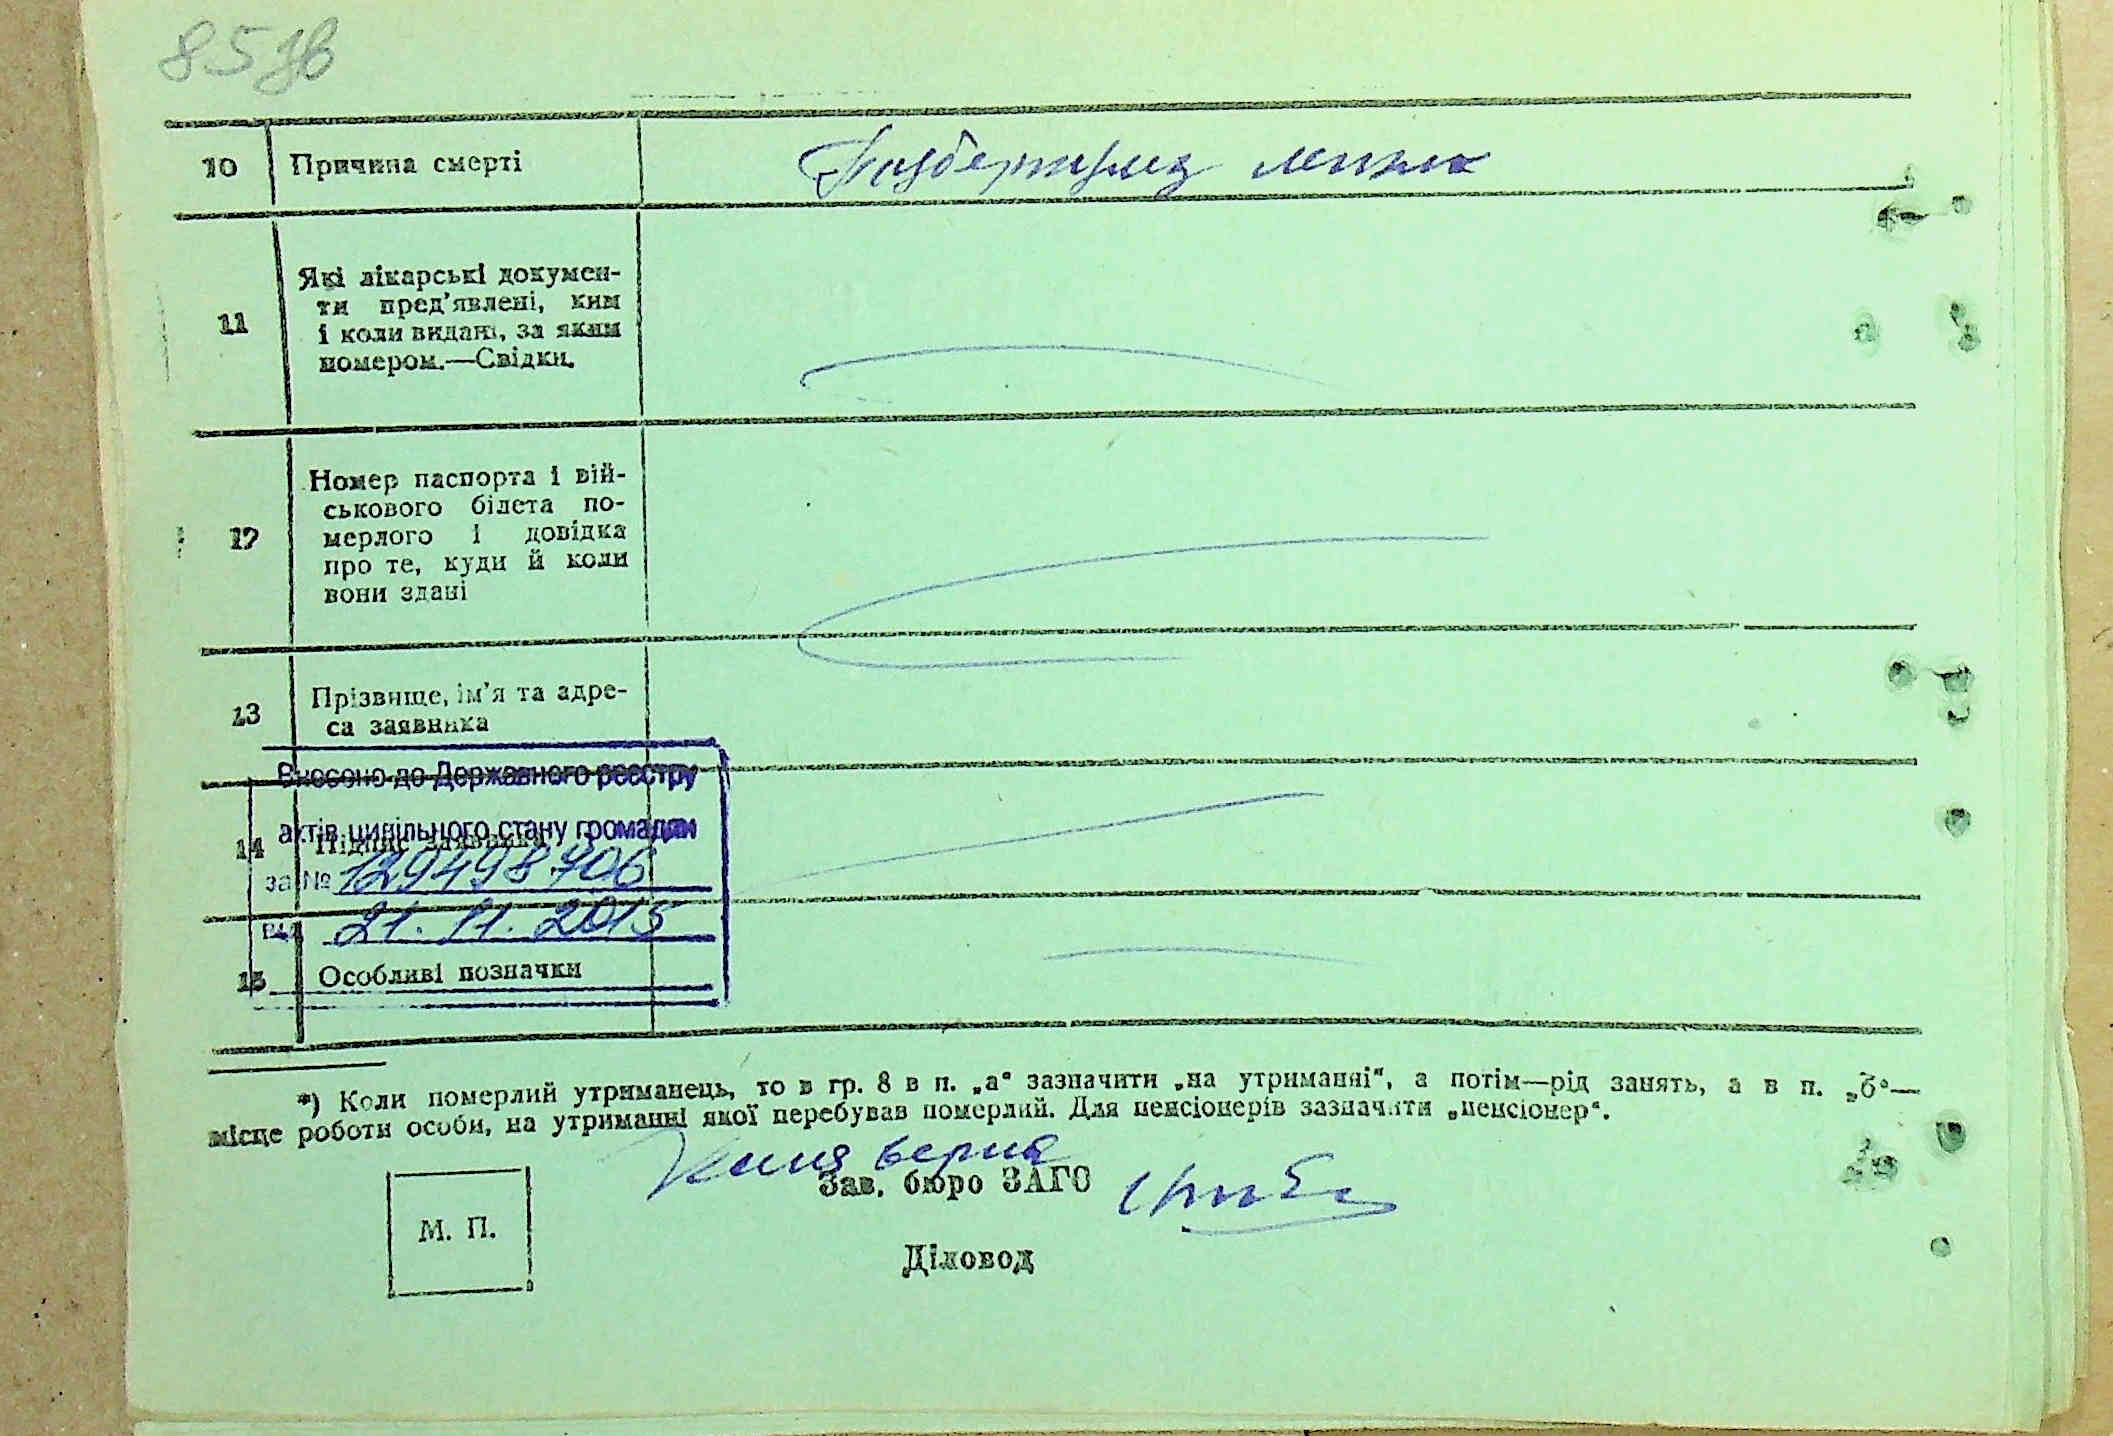 85зв
10 Причина смерті
11 Які лікарські докумен-
ти пред'явлені, ким
і коли видані, за яким
номером.—Свідки.
12 Номер паспорта і вій-
ськового білета по-
мерлого і довідка
про те, куди й коли
вони здані
13 Прізвище, ім'я та адре-
са заявника
Внесено до Державного реєстру
актів цивільного стану громадян
14 Підпис заявника
за № 129498706
від 21.11.2015
15 Особливі позначки
*) Коли померлий утриманець, то в гр. 8 в п. „а“ зазначити „на утриманні“, а потім—рід занять, а в п. „б“—
місце роботи особи, на утриманні якої перебував померлий. Для пенсіонерів зазначити „пенсіонер“.
Копия верна
Зав. бюро ЗАГС
М. П.
Діловод